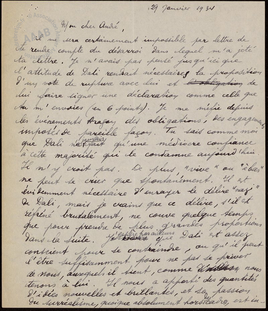 29 Janvier 1934
Mon cher André,
il sera certainement impossible par lettre de
te rendre compte du désarroi dans lequel m'a jeté
ta lettre. Je n'avais pas pensé jusqu'ici que
l'attitude de Dali rendrait nécessaires la proposition
d'un vote de rupture avec lui et
lui faire signer une déclaration comme celle que
tu m'envoies (en 6 points). Je me méfie depuis
les événements d'Aragon des obligations, des engagements
imposés de pareille façon. Tu sais comme moi
que Dali n'avait qu'une médiocre confiance
à cette majorité qui le condamne aujourd'hui.
Il n'y croit pas. Le plus, "vice" ou "bluff"
ne peut le viser que spontanément. Il est
évidemment nécessaire d'enrayer le délire "nazi"
de Dali, mais je crains que ce délire, s'il est
réprimé brutalement, ne couve quelque temps
pour prendre de plus graves proportions
dans la suite. Je
conscient pour le contraindre, ou qu'il peut
l'être suffisamment pour ne pas se priver
de nous, auxquels il tient, comme nous
tenons à lui. Il nous a apporté des quantités
d'idées nouvelles et brillantes, et sa passion
du surréalisme, quoique absolument